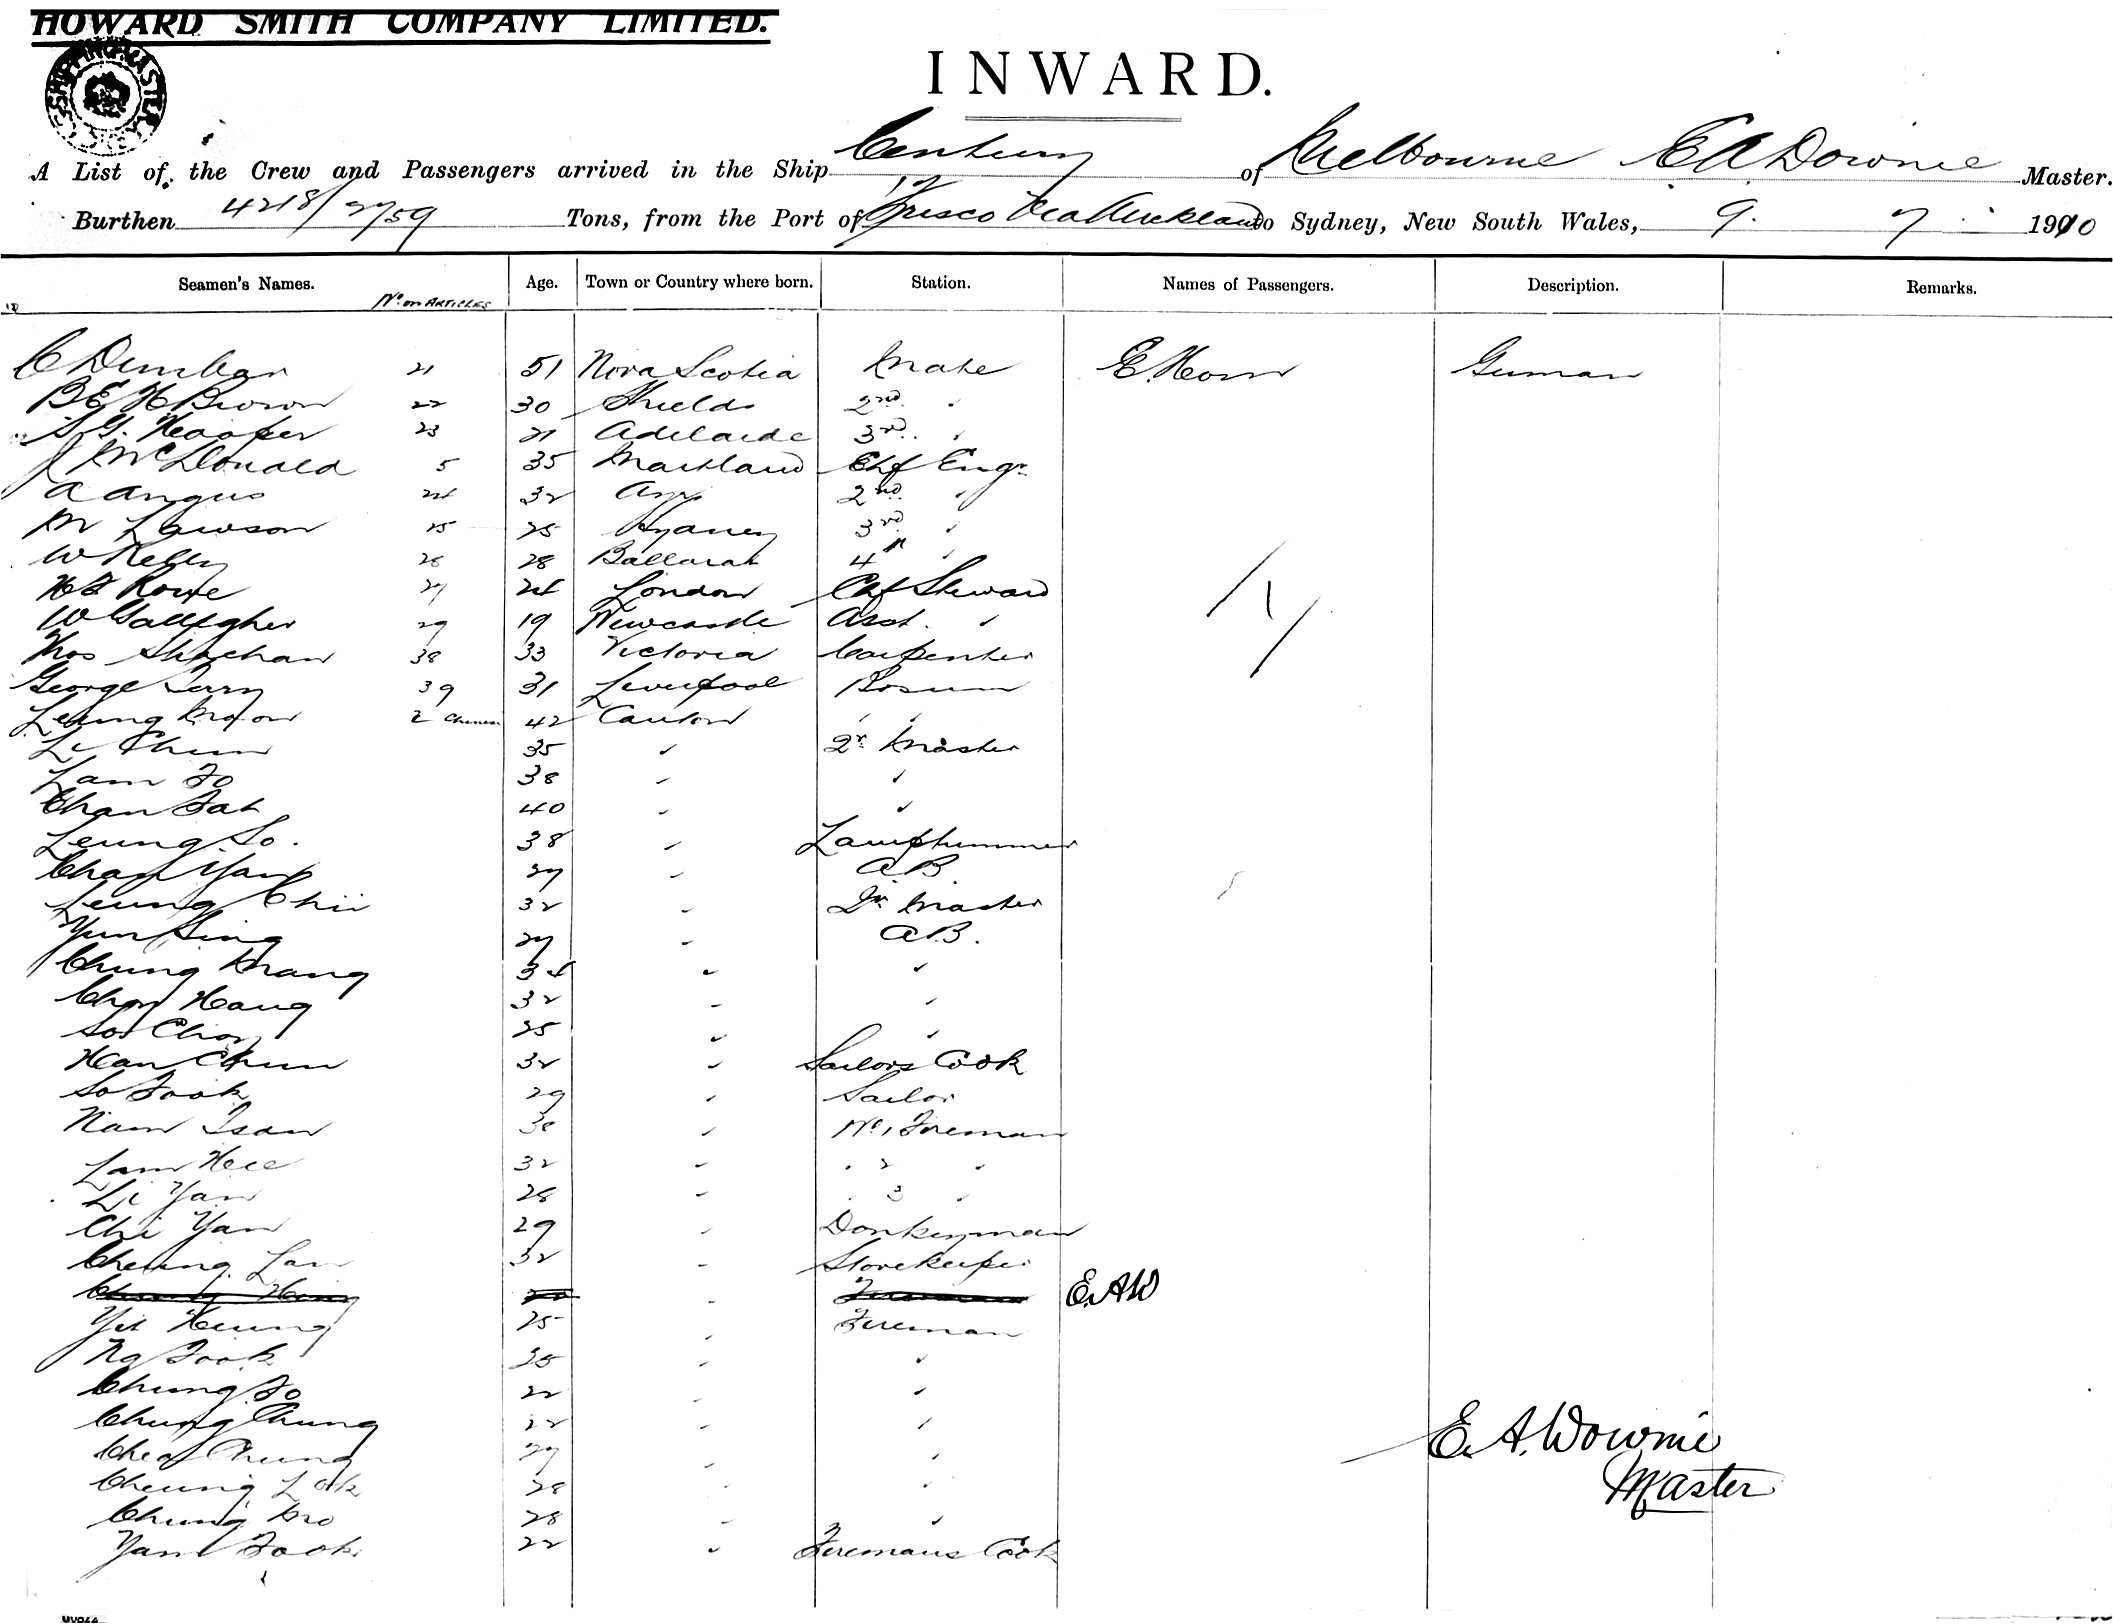 HOWARD SMITH COMPANY LIMITED.
SHIPPING MASTER
INWARD.
A List of the Crew and Passengers arrived in the Ship Century of Melbourne E A Downie Master.
Burthen 4218/2759 Tons, from the Port of Frisco via Auckland to Sydney, New South Wales, 9. 7 1910
Seamen's Names. No on ARTICLES Age. Town or Country where born. Station. Names of Passengers. Description. Remarks.
C Dunbar 21 51 Nova Scotia Mate E. Horn German
B E H Brown 22 30 Shields 2nd "
S. G. Hooper 23 21 Adelaide 3rd "
J McDonald 5 35 Maitland Chf Engr
A Angus 24 32 Ayr 2nd "
M Lawson 25 3rd "
W Kelly 26 28 Ballarat 4th "
Rowe 27 24 London Chf Steward
W Gallegher 29 19 Newcastle Asst. "
Thos 38 33 Victoria Carpenter
George Terry 39 31 Liverpool Bosun
Leung Moon 2 Chinese 42 Canton " "
Li Chun 35 " 2r Master
Lam Fo 38 " "
Chan Fat 40 " "
Leung So. 38 " Lamptrimmer
Chan Yau 27 " A.B.
Leung Chii 32 " Qr Master
Yun Sing 27 " A.B.
Chung Mang 34 " "
Choy Hang 32 " "
Soo Choy 25 " "
Han Chun 32 " Sailors Cook
So Fook 29 " Sailor
Nam Tsan " No 1 Fireman
Lam Hee 32 " " 2 "
Li Yan 28 " " 3 "
Chi Yan 29 " Donkeyman
Cheung Lan 32 " Storekeeper
Hing " Fireman E.AD
Yit Heung 25 " Fireman
Ng Fook 35 " "
Chung Fo 22 " "
Chung Chung 22 " "
Chung 27 " "
Cheung Lok 28 " "
Chung Mo 28 " "
Yam Fook 22 " Firemans Cook
E. A. Downie
Master